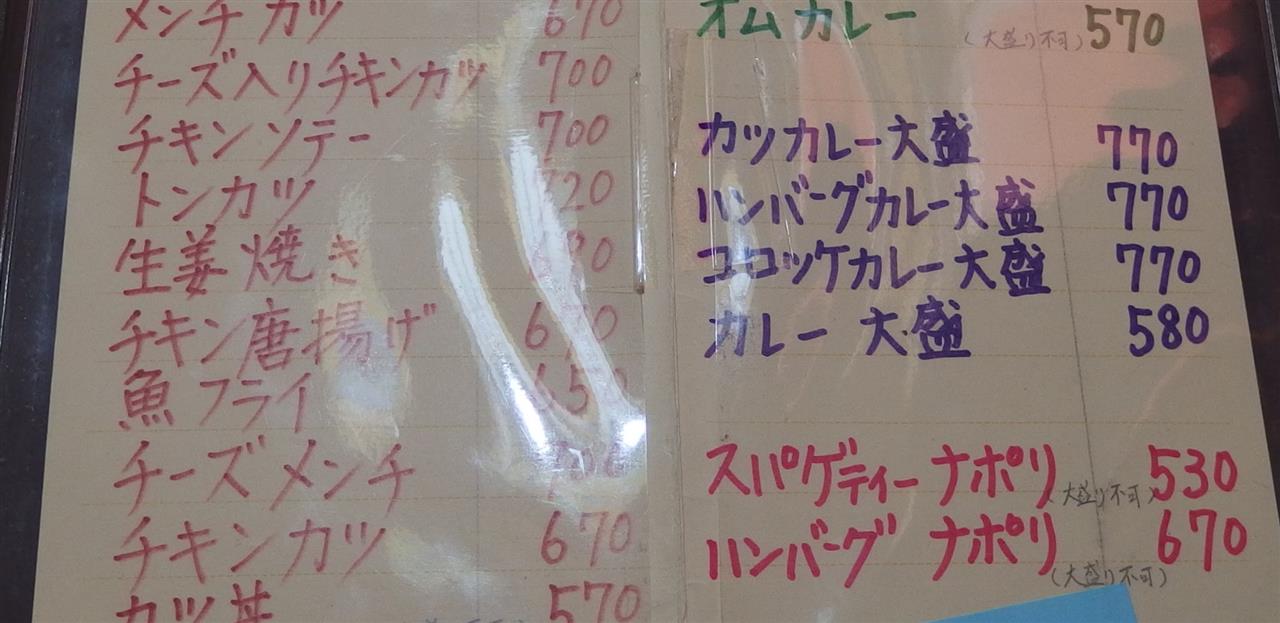 メンチカツ 670
チーズ入りチキンカツ 700
チキンソテー 700
トンカツ 720
生姜焼き
チキン唐揚げ 670
魚フライ 650
チーズメンチ 700
チキンカツ 670
カツ丼 570
オムカレー (大盛り不可) 570
カツカレー大盛 770
ハンバーグカレー大盛 770
コロッケカレー大盛 770
カレー 大盛 580
スパゲティー ナポリ (大盛り不可) 530
ハンバーグ ナポリ 670
(大盛り不可)